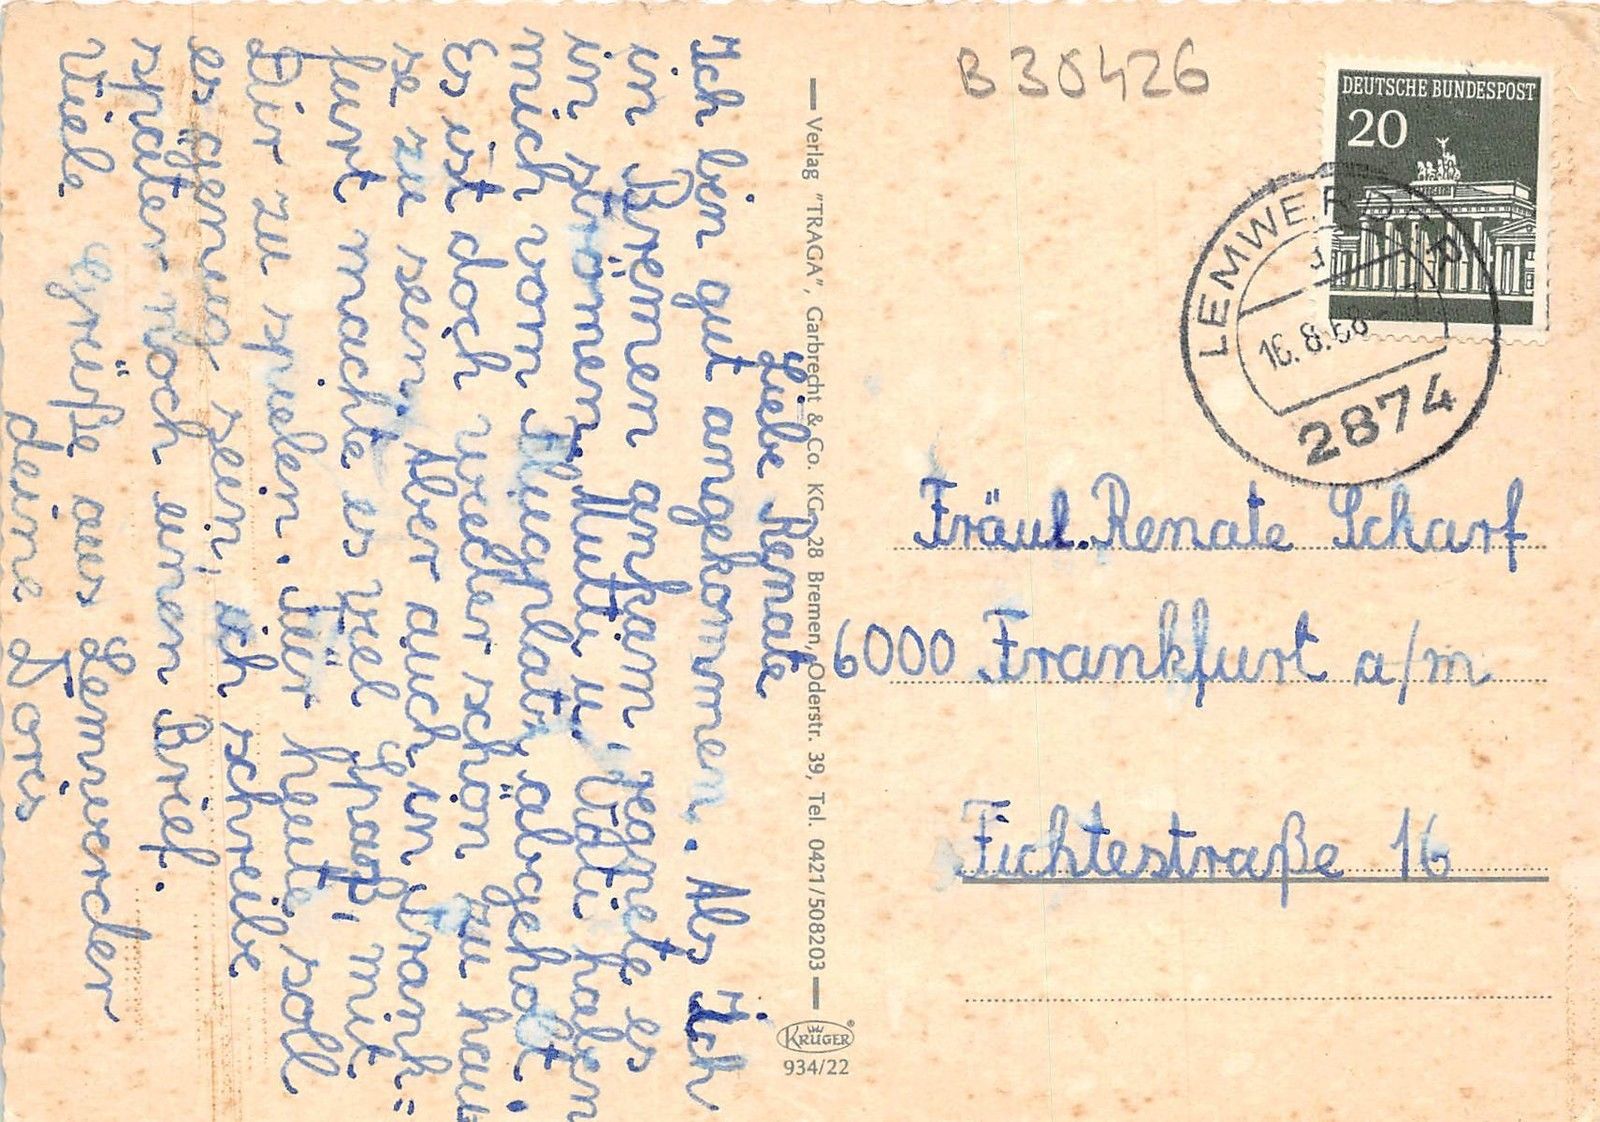 Liebe Renate
Ich bin gut angekommen. Als Ich
in Bremen ankam, regnete es
in strömen. Mutti u. Vati haben
mich vom Flugplatz abgeholt.
Es ist doch wieder schön zu hau
se zu sein. Aber auch in Frank=
furt machte es viel Spaß, mit
Dir zu spielen. Für heute soll
es genug sein, ich schreibe
später noch einen Brief.
Viele Grüße aus Lemwerder
deine Doris
Verlag "TRAGA", Garbrecht & Co. KG, 28 Bremen, Oderstr. 39, Tel. 0421/508203
KRÜGER®
934/22
B 30426
DEUTSCHE BUNDESPOST
20
LEMWERDER
16.8.68
2874
Fräul. Renate Scharf
6000 Frankfurt a/m
Fichtestraße 16